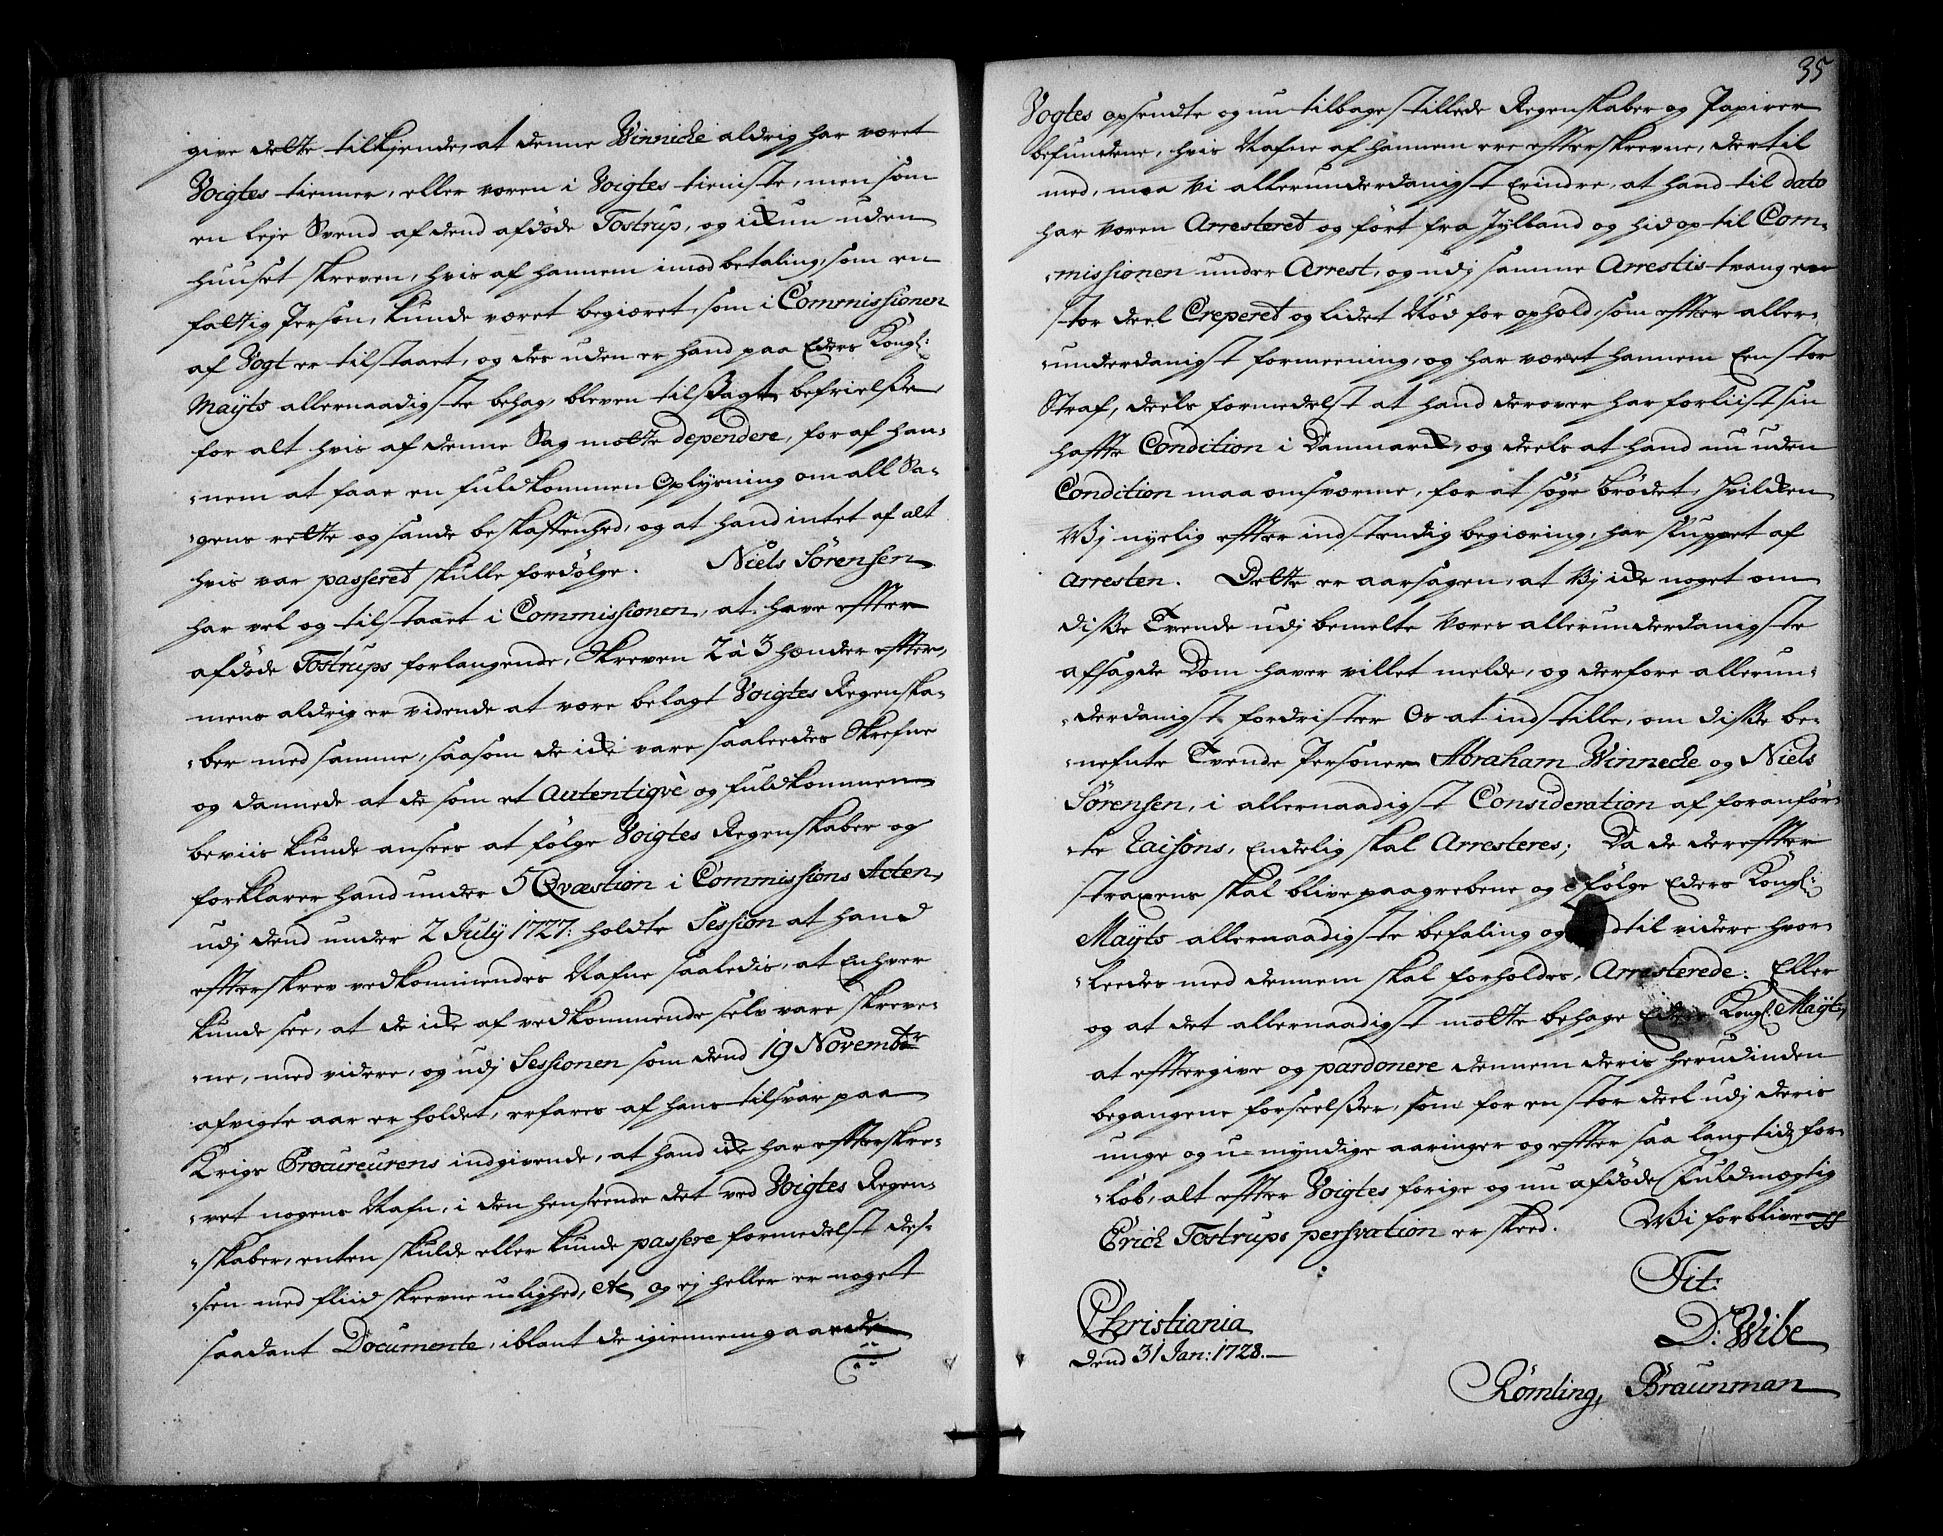 give dette tilkjende, at denne Winnecke aldrig har været
Voigtes tienner, eller voren i Voigtes tieniste, men som
en leje Svend af dend afdøde Tostrup, og ickun uden
huuset skreven, hvis af hannem imod betaling, som en
fattig Person, kunde været begiæret, som i Commissionen
af Vogt er tilstaaet, og des uden er hand paa Eders Kongl:
Maÿts allernaadigste behag, bleven tilsagt befrielsse
for alt hvis af denne Sag motte dependere, for af han-
-nem at faae en fuldkommen Oplysning om all Sa-
-gens rette og sande beskaffenhed, og at hand intet af alt
hvis var passeret skulle fordølge. Niels Sörensen
har vel og tilstaaet i Commissionen, at have effter
afdøde Tostrups forlangende, Skreven 2 à 3 hænder effter,
mens aldrig er vidende at vore belagt Voigtes Regenska-
-ber med samme, saasom de icke vare saaledes Skrefne
og dannede at de som et Autentiqvè og fuldkommen
beviis kunde ansees at følge Voigtes Regenskaber og
forklarer hand under 5 Qvæstion i Commissions Acten,
udj dend under 2 Julÿ 1727: holdte Session at hand
effterskrev vedkommendes Nafne saaledis, at Enhver
kunde see, at de icke af vedkommende selv vare skreve-
-ne, med videre, og udj Sessionen som dend 19 Novembr
afvigte aar er holdet, erfares af hans tilsvar paa
Krigs Procureurens indgivende, at hand icke har effterskre-
-vet nogens Nafn, i den henseende det ved Voigtes Regen-
-skaber, enten skulde eller kunde passere formedelst des-
-sen med fliid skrevne u-lighed, etc og ej heller er noget
saadant Documente, iblant de igiennemgaaende
35
Vogtes opsendte og nu tilbagestillede Regenskaber og Papirer
befundene, hvis Nafne af hannem ere effterskrevne, dertil
med, maa Vi allerunderdanigst Erindre, at hand til dato
har voren Arresteret og ført fra Jÿlland og hid op til Com-
-missionen under Arrest, og udj samme Arrestis tvang en
stor deel Creperet og lidet Nød for ophold, som effter aller-
-underdanigst formeening, og har været hannem Een stor
Straf, deels formedelst at hand derover har forliist sin
haffte Condition i Danmarck, og deels at hand nu uden
Condition maa omsværme, for at søge brødet, hvilcken
Vj nyelig effter indstendig begiæring, har sluppet af
Arresten. Dette er aarsagen, at Vj icke noget om
disse Tvende udj bemelte Vores allerunderdanigste
afsagde Dom haver villet melde, og derfore allerun-
-derdanigst fordrister Os at indstille, om disse be-
-nefnte Tvende Personer Abraham Winnecke og Niels
Sörensen, i allernaadigst Consideration af foranför-
-te Raisons, Endelig skal Arresteres; Da de dereffter
straxens skal blive paagrebene og følge Eders Kongl:
Maÿts allernaadigste befaling og indtil videre hvor-
-ledes med dennem skal forholdes, Arresterede: Eller
og at det allernaadigst motte behage Eders Kongl: Maÿts
at efftergive og pardonere dennem deris herudinden
begangene forseelsser, som for en stor deel udj deris
unge og u-myndige aaringer og effter saa lang tids for-
-løb, alt effter Voigtes forige og nu afdøde Fuldmægtig
Erich Tostrups persvation er skeed. Wi forblive
Tit:
Christiania
D: Wibe
dend 31 Jan: 1728.
Römling, Braunman